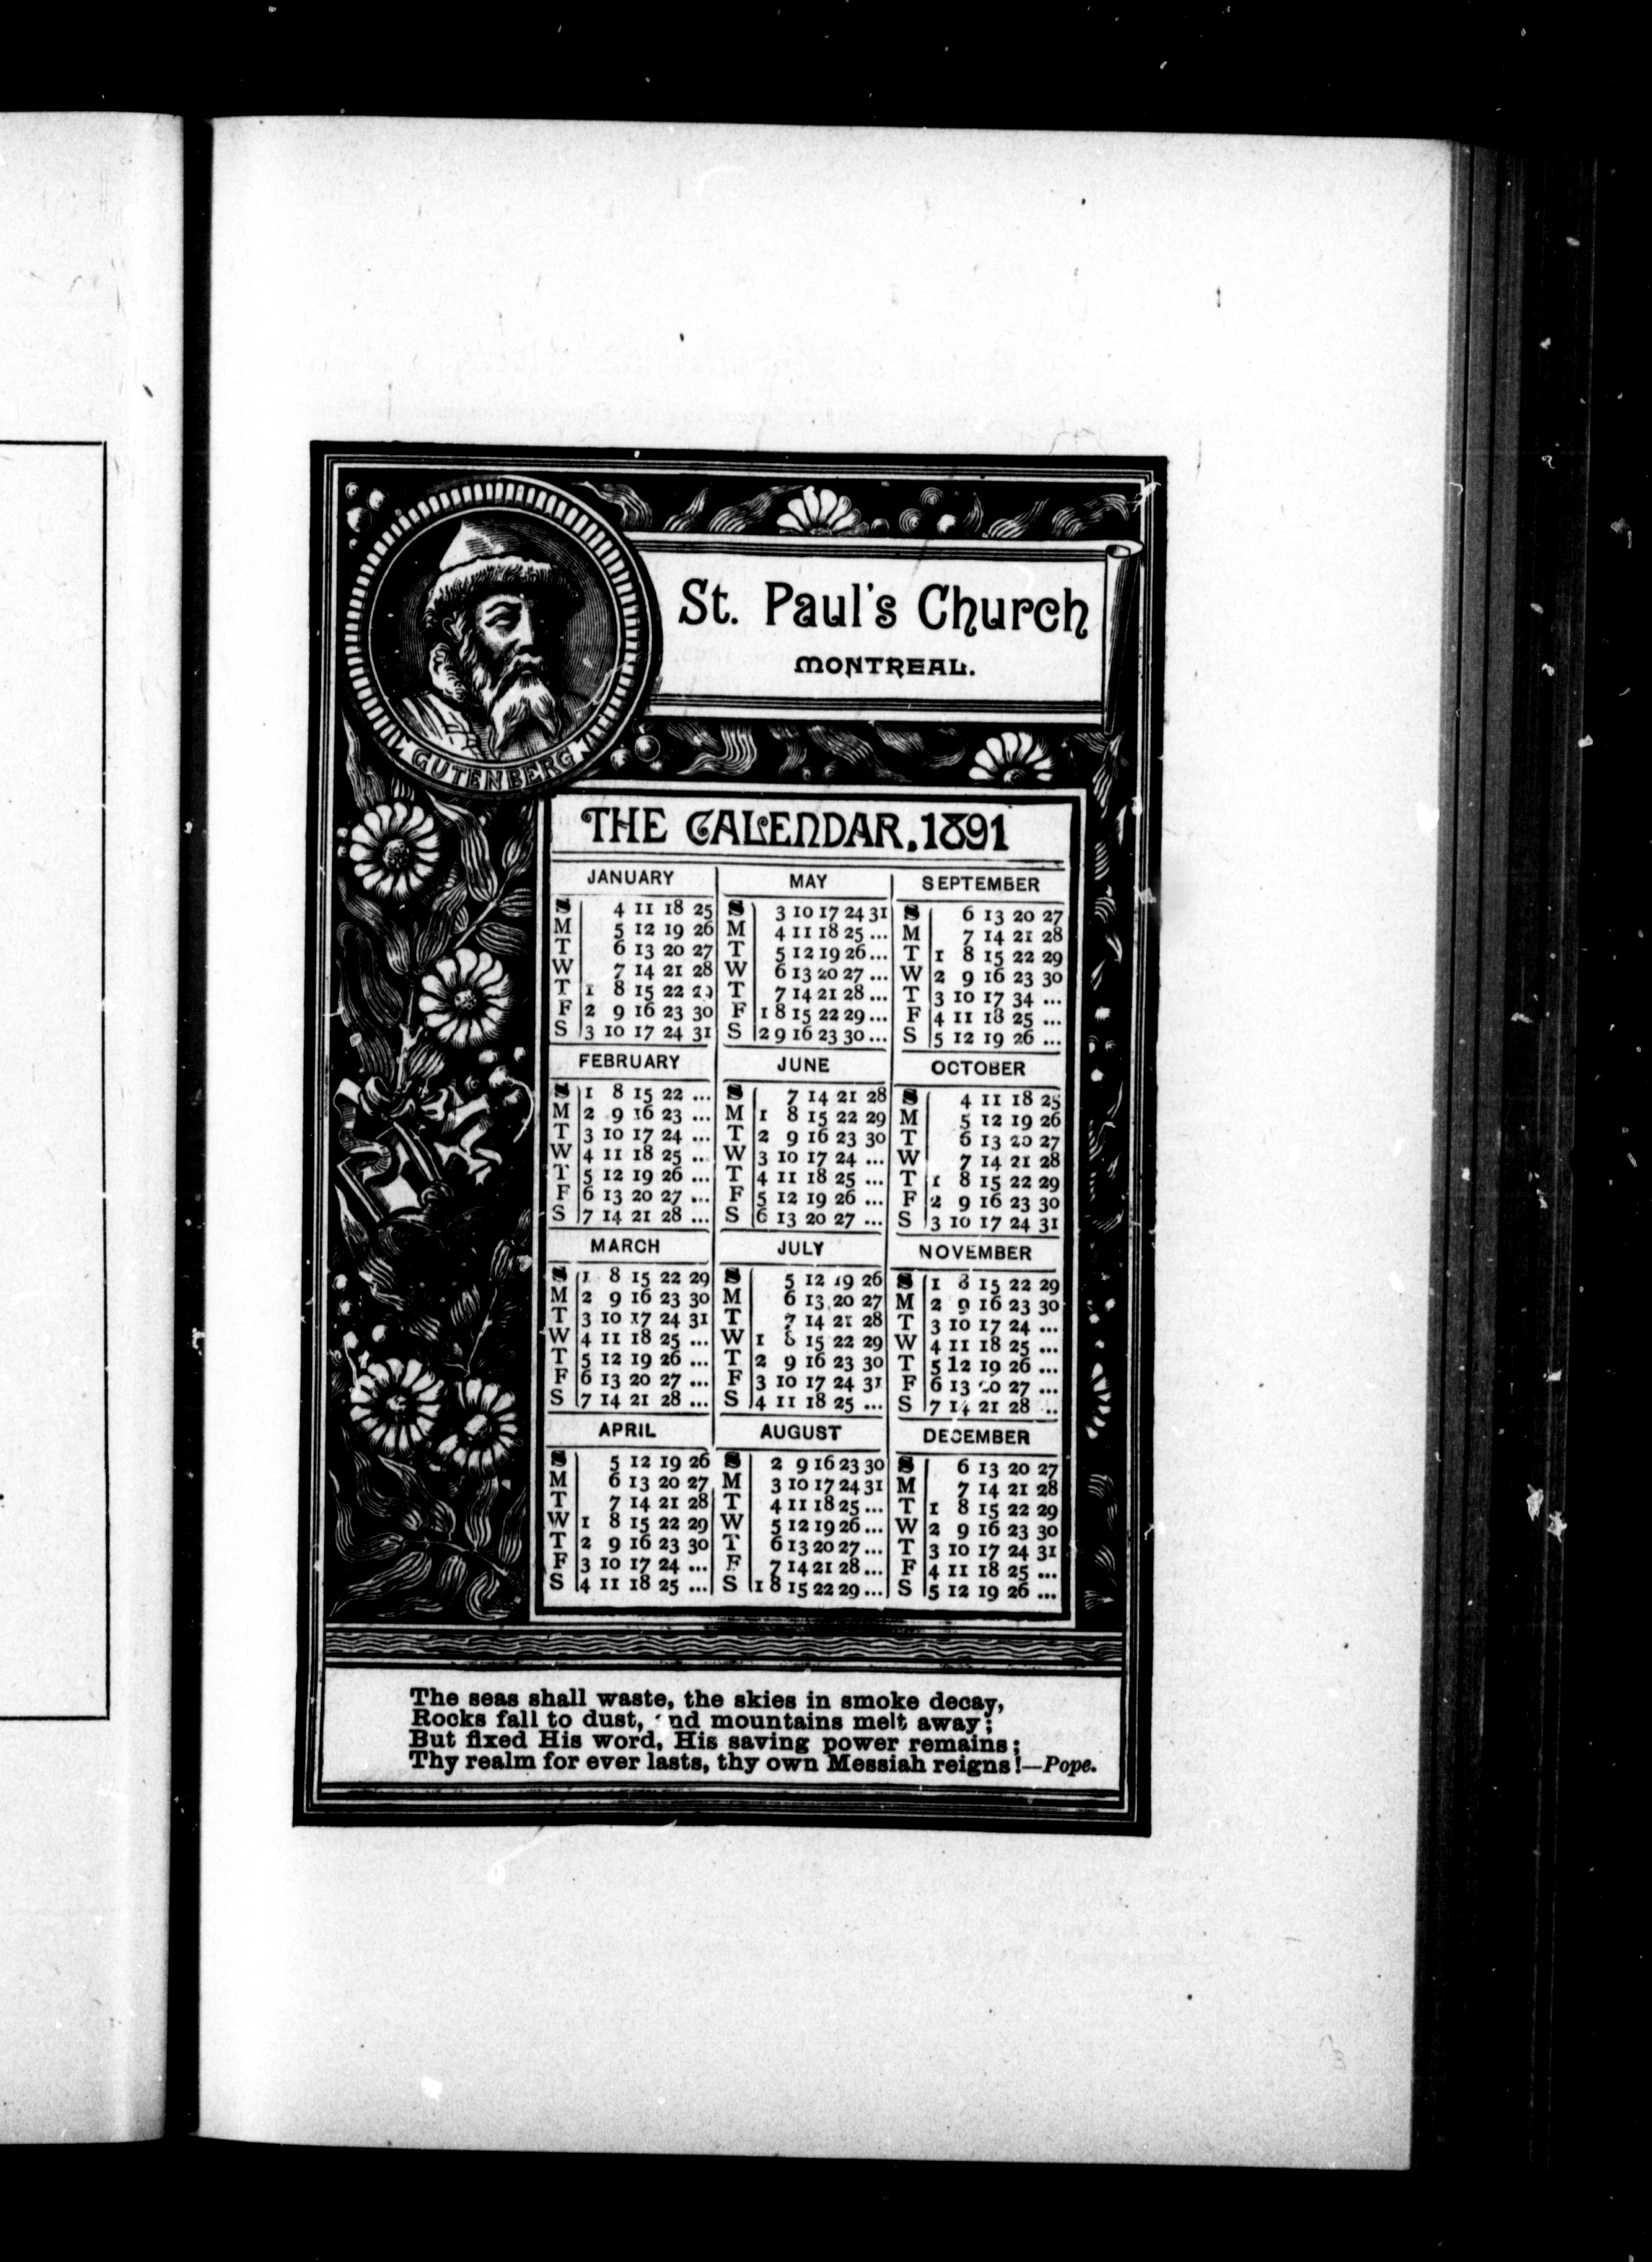 St. Paul's Church
MONTREAL.
GUTENBERG
THE CALENDAR, 1891
JANUARY
S 4 11 18 25
M 5 12 19 26
T 6 13 20 27
W 7 14 21 28
T 1 8 15 22 29
F 2 9 16 23 30
S 3 10 17 24 31
FEBRUARY
S 1 8 15 22 ...
M 2 9 16 23 ...
T 3 10 17 24 ...
W 4 11 18 25 ...
T 5 12 19 26 ...
F 6 13 20 27 ...
S 7 14 21 28 ...
MARCH
S 1 8 15 22 29
M 2 9 16 23 30
T 3 10 17 24 31
W 4 11 18 25 ...
T 5 12 19 26 ...
F 6 13 20 27 ...
S 7 14 21 28 ...
APRIL
S 5 12 19 26
M 6 13 20 27
T 7 14 21 28
W 1 8 15 22 29
T 2 9 16 23 30
F 3 10 17 24 ...
S 4 11 18 25 ...
MAY
S 3 10 17 24 31
M 4 11 18 25 ...
T 5 12 19 26 ...
W 6 13 20 27 ...
T 7 14 21 28 ...
F 1 8 15 22 29 ...
S 2 9 16 23 30 ...
JUNE
S 7 14 21 28
M 1 8 15 22 29
T 2 9 16 23 30
W 3 10 17 24 ...
T 4 11 18 25 ...
F 5 12 19 26 ...
S 6 13 20 27 ...
JULY
S 5 12 19 26
M 6 13 20 27
T 7 14 21 28
W 1 8 15 22 29
T 2 9 16 23 30
F 3 10 17 24 31
S 4 11 18 25 ...
AUGUST
S 2 9 16 23 30
M 3 10 17 24 31
T 4 11 18 25 ...
W 5 12 19 26 ...
T 6 13 20 27 ...
F 7 14 21 28 ...
S 1 8 15 22 29 ...
SEPTEMBER
S 6 13 20 27
M 7 14 21 28
T 1 8 15 22 29
W 2 9 16 23 30
T 3 10 17 34 ...
F 4 11 18 25 ...
S 5 12 19 26 ...
OCTOBER
S 4 11 18 25
M 5 12 19 26
T 6 13 20 27
W 7 14 21 28
T 1 8 15 22 29
F 2 9 16 23 30
S 3 10 17 24 31
NOVEMBER
S 1 8 15 22 29
M 2 9 16 23 30
T 3 10 17 24 ...
W 4 11 18 25 ...
T 5 12 19 26 ...
F 6 13 20 27 ...
S 7 14 21 28 ..
DECEMBER
S 6 13 20 27
M 7 14 21 28
T 1 8 15 22 29
W 2 9 16 23 30
T 3 10 17 24 31
F 4 11 18 25 ...
S 5 12 19 26 ...
The seas shall waste, the skies in smoke decay,
Rocks fall to dust, and mountains melt away;
But fixed His word, His saving power remains;
Thy realm for ever lasts, thy own Messiah reigns!—Pope.